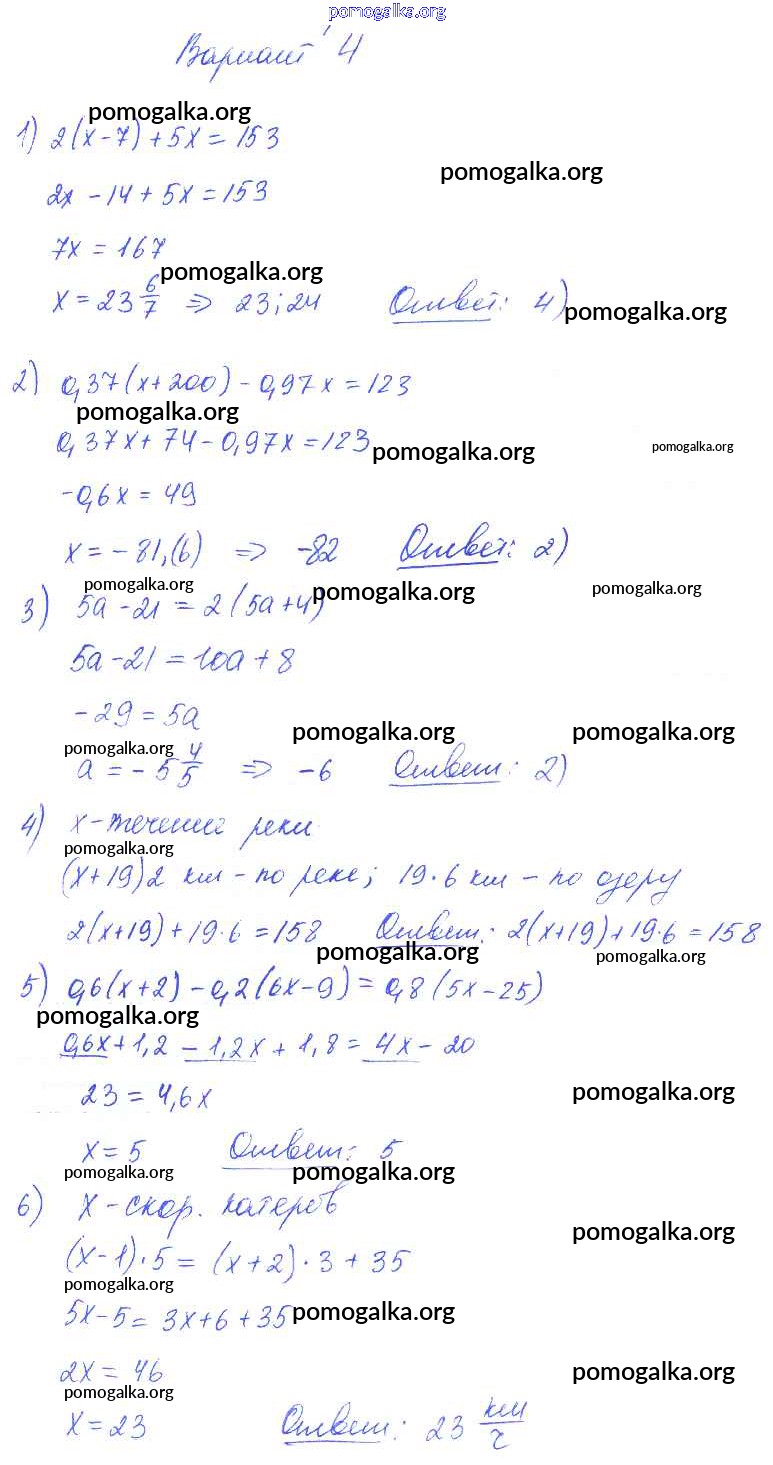 pomogalka.org
Вариант 4
pomogalka.org
1) 2(x-7)+5x=153
pomogalka.org
2x-14+5x=153
7x=167
pomogalka.org
x=23 6/7 ⇒ 23;24 Ответ: 4)
pomogalka.org
2) 0,37(x+200)-0,97x=123
pomogalka.org
0,37x+74-0,97x=123
pomogalka.org pomogalka.org
-0,6x=49
x=-81,(6) ⇒ -82 Ответ: 2)
pomogalka.org pomogalka.org pomogalka.org
3) 5a-21=2(5a+4)
5a-21=10a+8
-29=5a
pomogalka.org pomogalka.org pomogalka.org
a=-5 4/5 ⇒ -6 Ответ: 2)
4) x-течение реки
pomogalka.org
(x+19)2 км-по реке; 19·6 км-по озеру
2(x+19)+19·6=158 Ответ: 2(x+19)+19·6=158
pomogalka.org pomogalka.org
5) 0,6(x+2)-0,2(6x-9)=0,8(5x-25)
pomogalka.org
0,6x+1,2-1,2x+1,8=4x-20
23=4,6x pomogalka.org
x=5 Ответ: 5
pomogalka.org pomogalka.org
6) x-скор. катеров
pomogalka.org
(x-1)·5=(x+2)·3+35
pomogalka.org
5x-5=3x+6+35 pomogalka.org
2x=46 pomogalka.org
pomogalka.org
x=23 Ответ: 23 км/ч